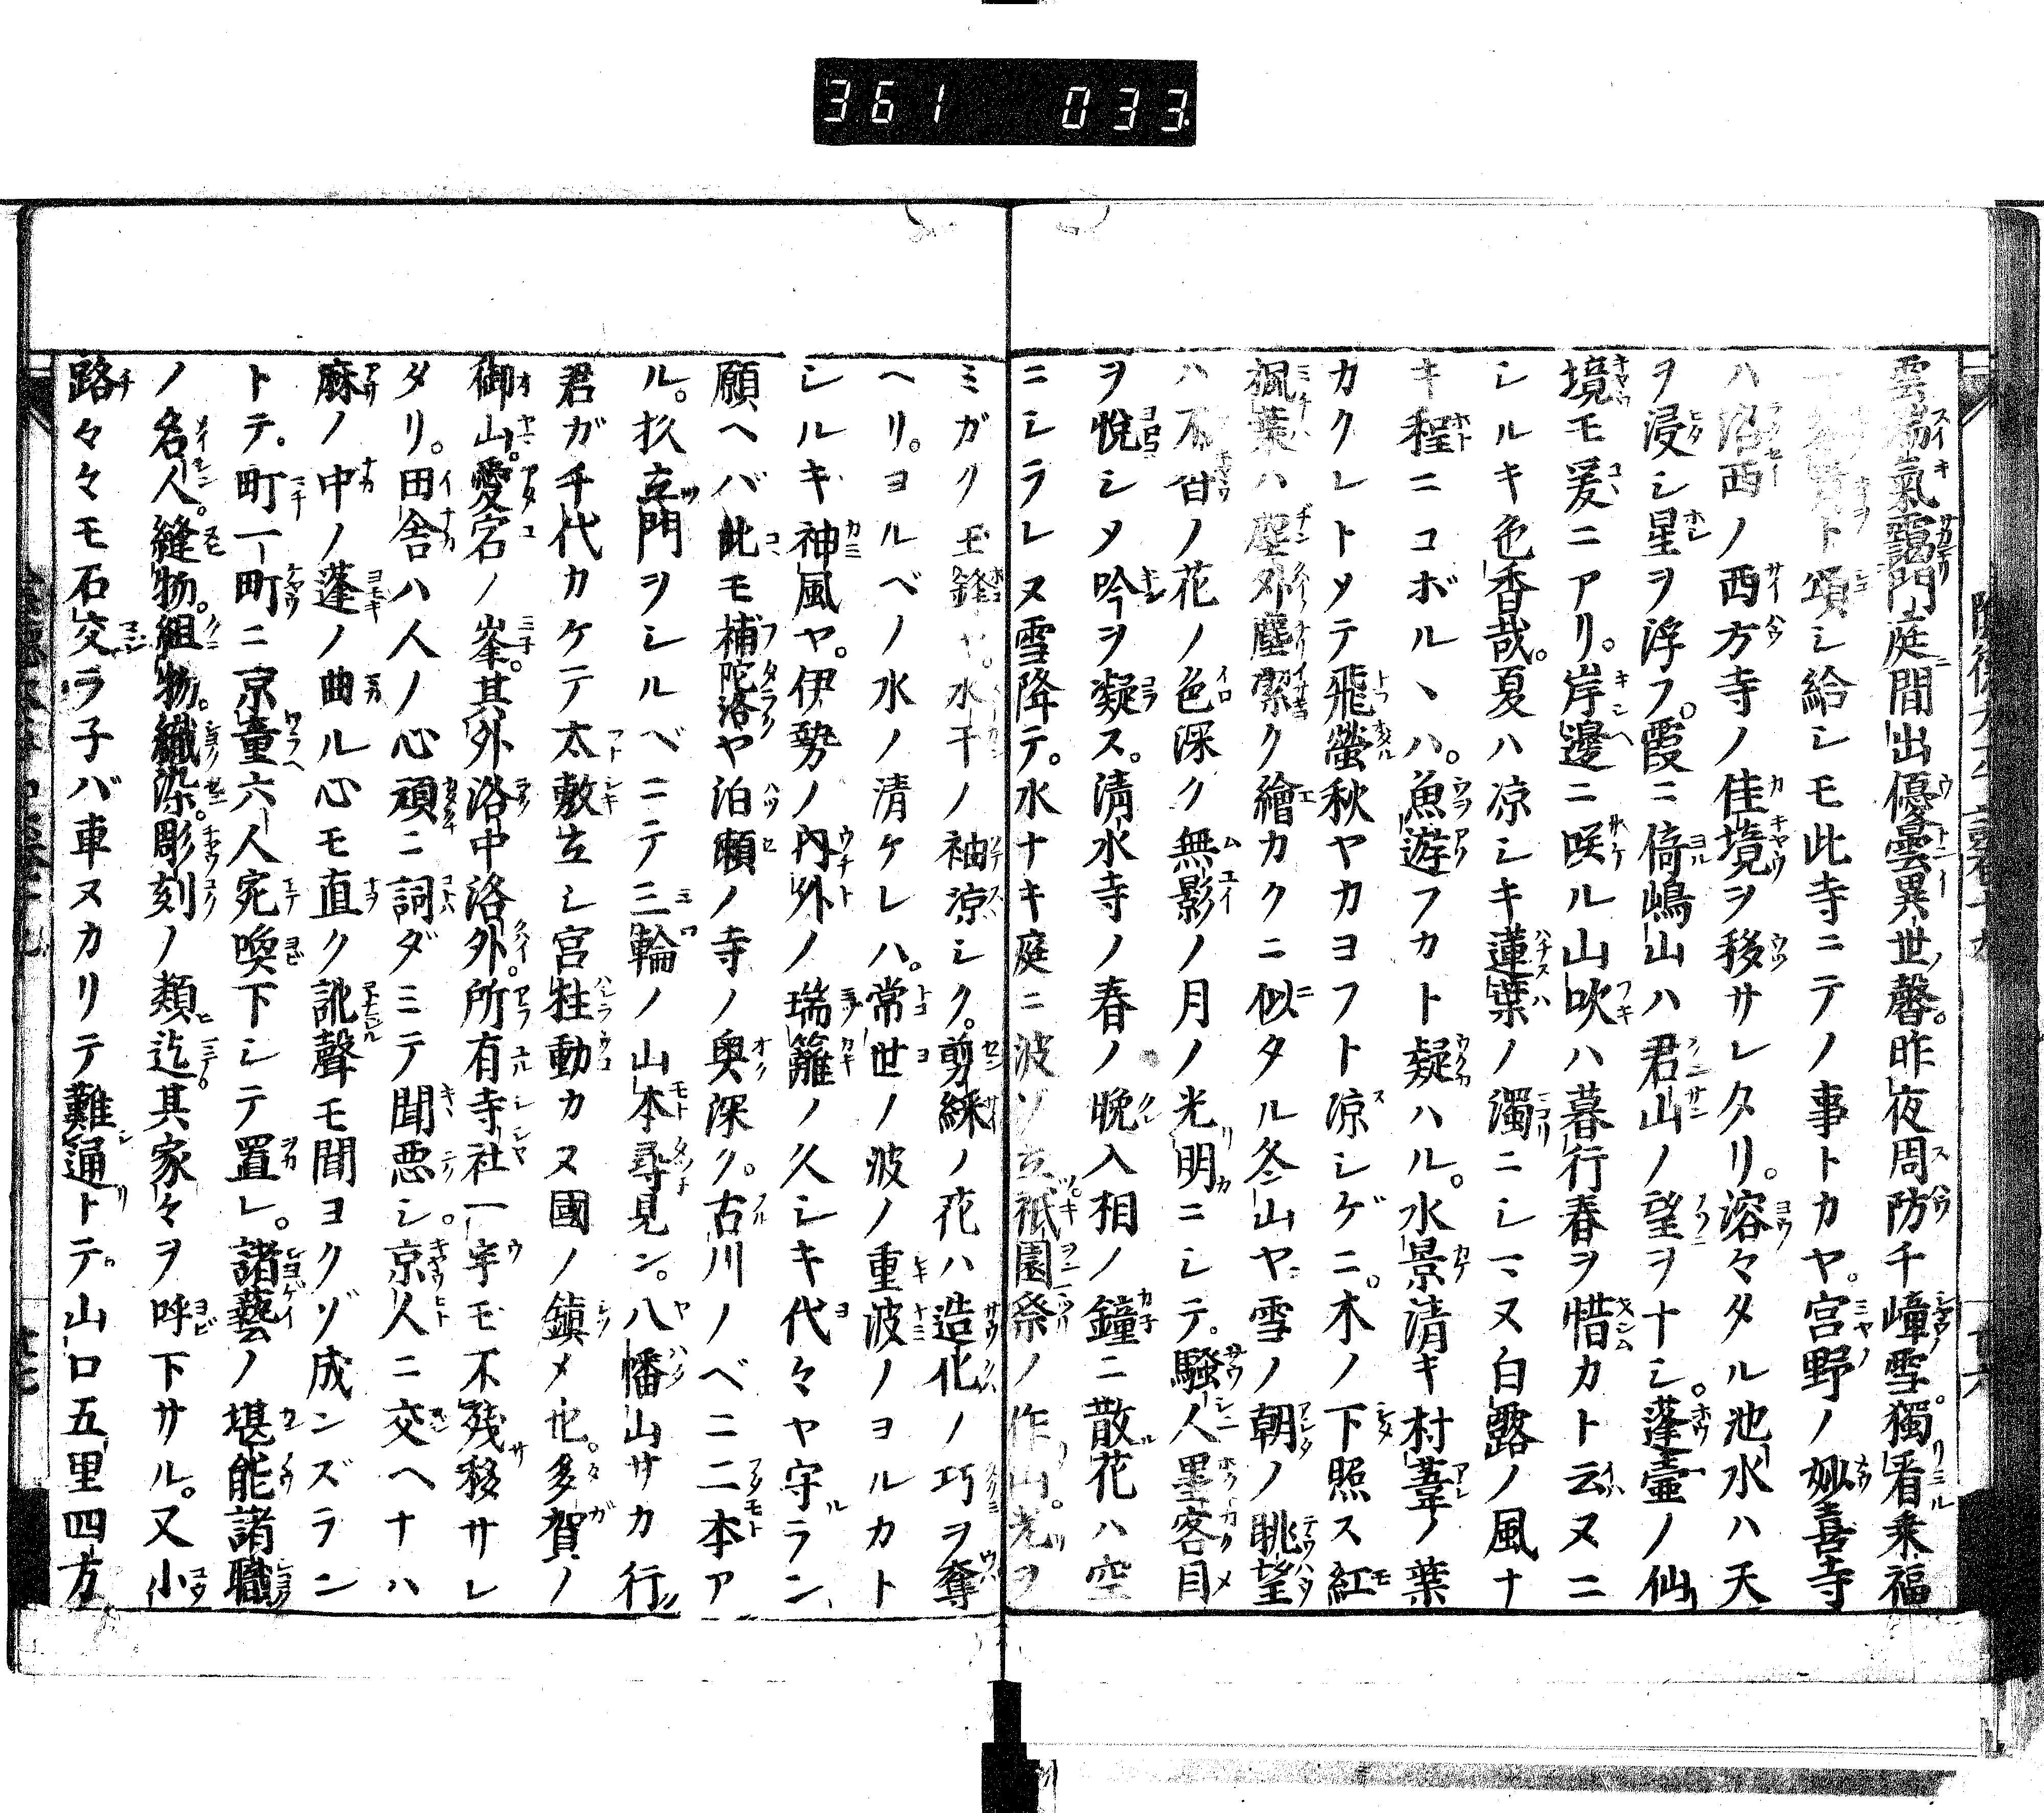 361 033
雲瑞氣靄門庭間出優曇異世馨。昨夜周防千嶂雪。獨看乘福
ト頌シ給シモ此寺ニテノ事トカヤ。宮野ノ妙喜寺
ハ沼西ノ西方寺ノ佳境ヲ移サレタリ。溶々タル池水ハ天
ヲ浸シ星ヲ浮フ。霞ニ倚嶋山ハ君山ノ望ヲナシ。蓬壷ノ仙
境モ爰ニアリ。岸邊ニ咲ル山吹ハ暮行春ヲ惜カト云ヌニ
シルキ色香哉。夏ハ凉シキ蓮葉ノ濁ニシマヌ白露ノ風ナ
キ程ニコボルヽハ。魚遊フカト疑ハル。水景清キ村葦ノ葉
カクレトメテ飛螢秋ヤカヨフト凉シゲニ。木ノ下照ス紅
楓葉ハ塵外塵潔ク繪カクニ似タル冬山ヤ雪ノ朝ノ眺望
ハ不香ノ花ノ色深ク無影ノ月ノ光明ニシテ。騷人墨客目
ヲ悅シメ吟ヲ凝ス。清水寺ノ春ノ晚入相ノ鐘ニ散花ハ空
ニシラレヌ雪降テ。水ナキ庭ニ波ゾ立祇園祭ノ作山。光ヲ
ミガク玉鋒ヤ。水干ノ袖凉シク。剪綵ノ花ハ造化ノ巧ヲ奪
ヘリ。ヨルベノ水ノ清ケレハ。常世ノ波ノ重波ノヨルカト
シルキ神風ヤ。伊勢ノ內外ノ瑞籬ノ久シキ代々ヤ守ラン
願ヘバ此モ補陀洛ヤ泊瀬ノ寺ノ奥深ク。古川ノベニ二本ア
ル。杦立門ヲシルベニテ三輪ノ山本尋見ン。八幡山サカ行
君ガ千代カケテ太敷立シ宮柱動カヌ國ノ鎮メ也。多賀ノ
御山。愛宕ノ峯。其外洛中洛外。所有寺社一宇モ不殘移サレ
タリ。田舎ハ人ノ心頑ニ詞ダミテ聞悪シ。京人ニ交ヘナハ
麻ノ中ノ蓬ノ曲ル心モ直ク訛聲モ聞ヨクゾ成ンズラン
トテ。町一町ニ京童六人宛喚下シテ置レ。諸藝ノ堪能諸職
ノ名人。縫物。組物。織染。彫刻ノ類迄其家々ヲ呼下サル。又小
路々々モ石交ラ子バ車ヌカリテ難通トテ。山口五里四方